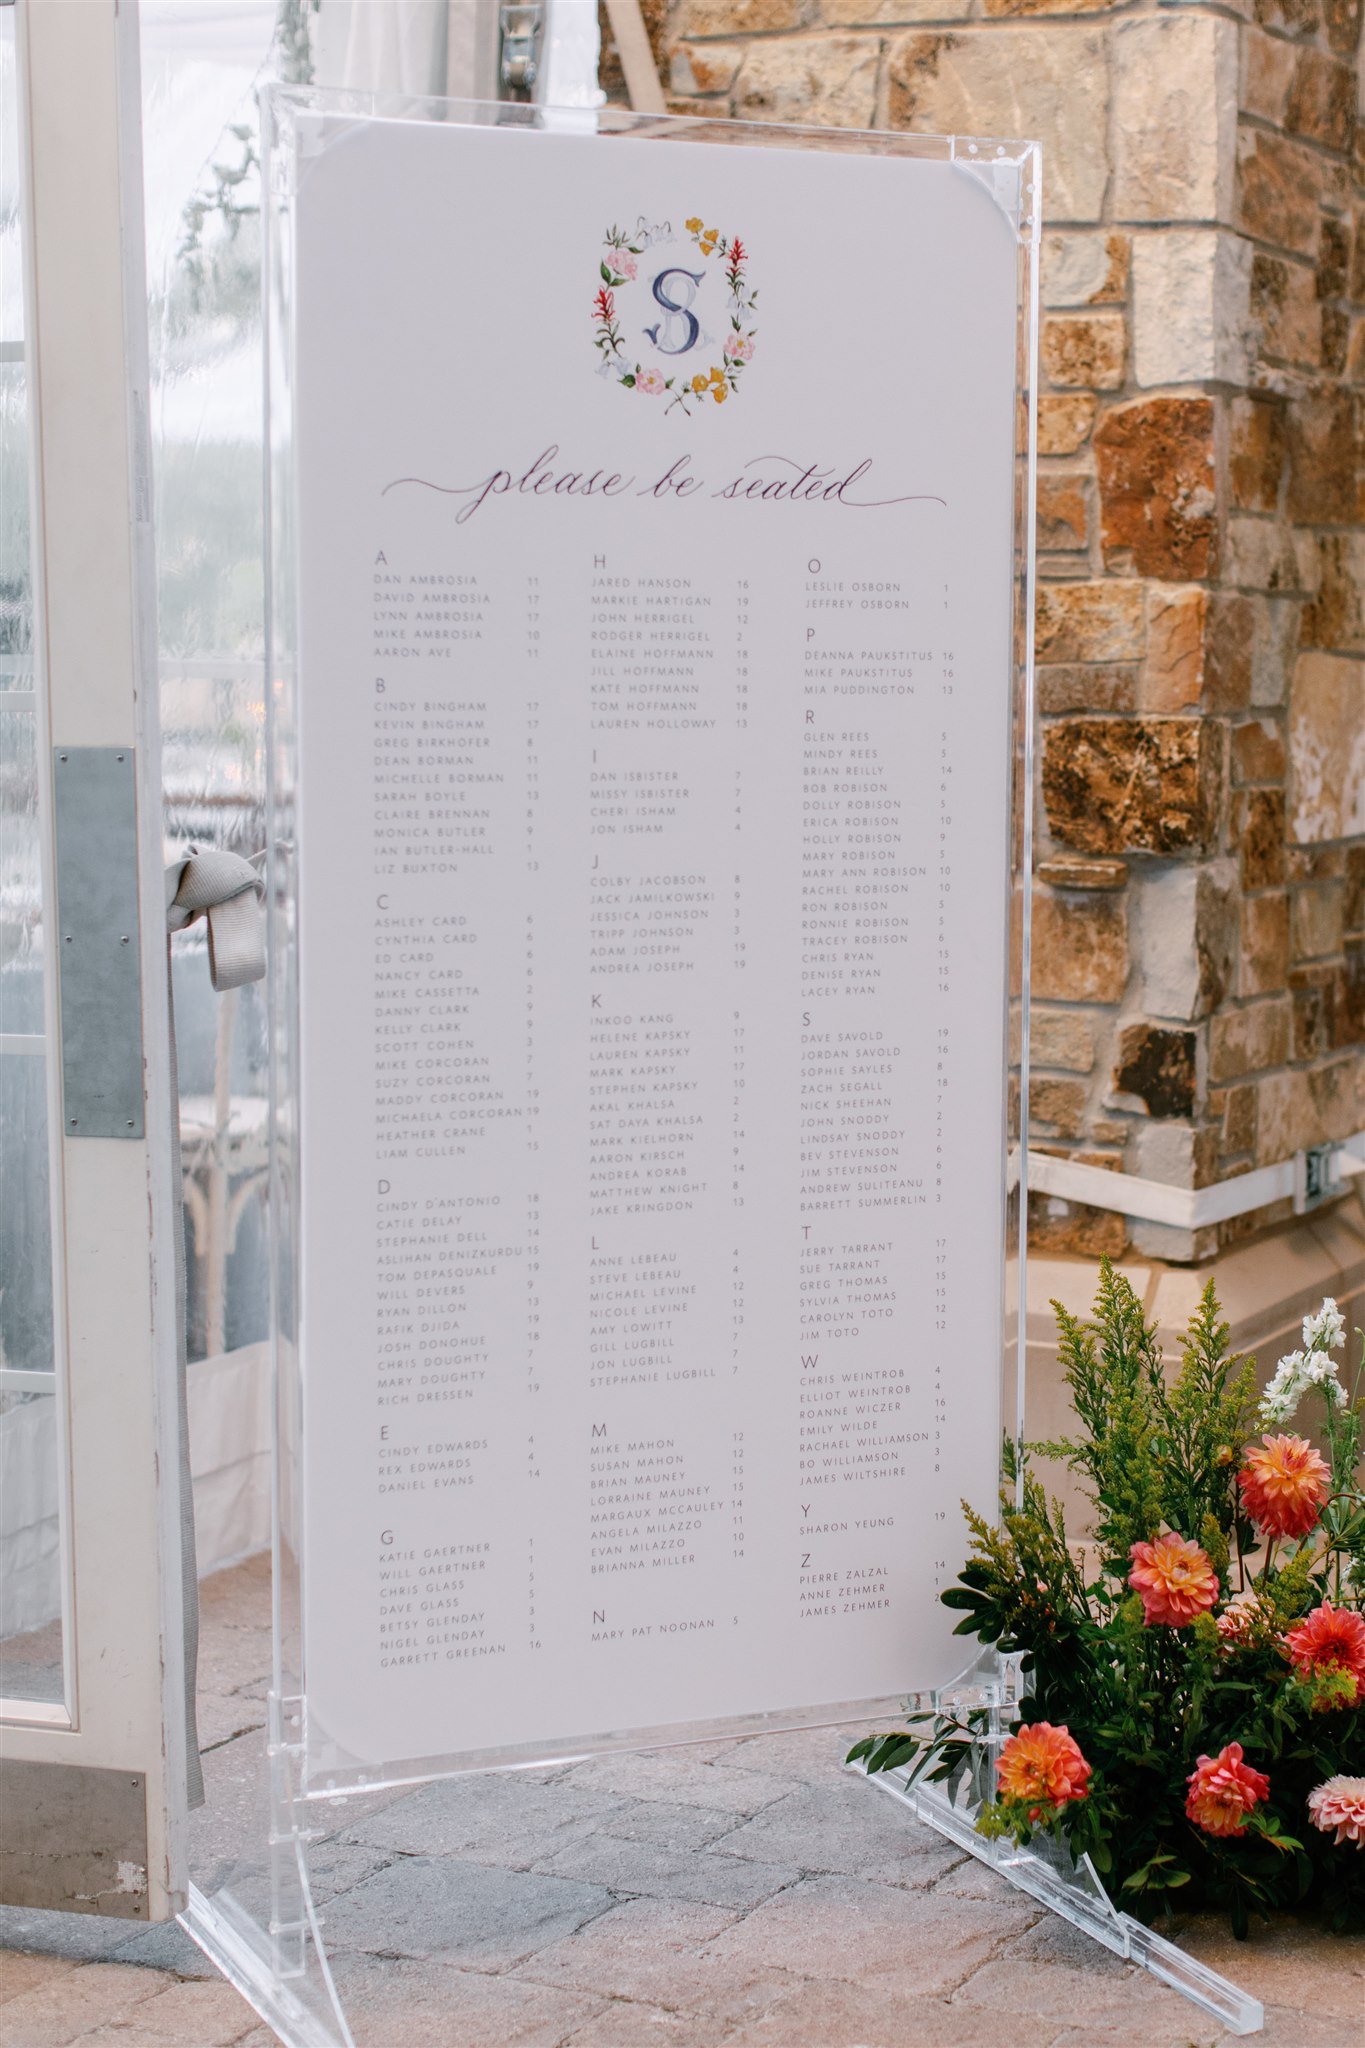 S
please be seated
A
DAN AMBROSIA 11
DAVID AMBROSIA 17
LYNN AMBROSIA 17
MIKE AMBROSIA 10
AARON AVE 11
B
CINDY BINGHAM 17
KEVIN BINGHAM 17
GREG BIRKHOFER 8
DEAN BORMAN 11
MICHELLE BORMAN 11
SARAH BOYLE 13
CLAIRE BRENNAN 8
MONICA BUTLER 9
IAN BUTLER-HALL 1
LIZ BUXTON 13
C
ASHLEY CARD 6
CYNTHIA CARD 6
ED CARD 6
NANCY CARD 6
MIKE CASSETTA 2
DANNY CLARK 9
KELLY CLARK 9
SCOTT COHEN 3
MIKE CORCORAN 7
SUZY CORCORAN 7
MADDY CORCORAN 19
MICHAELA CORCORAN 19
HEATHER CRANE 1
LIAM CULLEN 15
D
CINDY D'ANTONIO 18
CATIE DELAY 13
STEPHANIE DELL 14
ASLIHAN DENIZKURDU 15
TOM DEPASQUALE 19
WILL DEVERS 9
RYAN DILLON 13
RAFIK DJIDA 19
JOSH DONOHUE 18
CHRIS DOUGHTY 7
MARY DOUGHTY 7
RICH DRESSEN 19
E
CINDY EDWARDS 4
REX EDWARDS 4
DANIEL EVANS 14
G
KATIE GAERTNER 1
WILL GAERTNER 1
CHRIS GLASS 5
DAVE GLASS 5
BETSY GLENDAY 3
NIGEL GLENDAY 3
GARRETT GREENAN 16
H
JARED HANSON 16
MARKIE HARTIGAN 19
JOHN HERRIGEL 12
RODGER HERRIGEL 2
ELAINE HOFFMANN 18
JILL HOFFMANN 18
KATE HOFFMANN 18
TOM HOFFMANN 18
LAUREN HOLLOWAY 13
I
DAN ISBISTER 7
MISSY ISBISTER 7
CHERI ISHAM 4
JON ISHAM 4
J
COLBY JACOBSON 8
JACK JAMILKOWSKI 9
JESSICA JOHNSON 3
TRIPP JOHNSON 3
ADAM JOSEPH 19
ANDREA JOSEPH 19
K
INKOO KANG 9
HELENE KAPSKY 17
LAUREN KAPSKY 11
MARK KAPSKY 17
STEPHEN KAPSKY 10
AKAL KHALSA 2
SAT DAYA KHALSA 2
MARK KIELHORN 14
AARON KIRSCH 9
ANDREA KORAB 14
MATTHEW KNIGHT 8
JAKE KRINGDON 13
L
ANNE LEBEAU 4
STEVE LEBEAU 4
MICHAEL LEVINE 12
NICOLE LEVINE 12
AMY LOWITT 13
GILL LUGBILL 7
JON LUGBILL 7
STEPHANIE LUGBILL 7
M
MIKE MAHON 12
SUSAN MAHON 12
BRIAN MAUNEY 15
LORRAINE MAUNEY 15
MARGAUX MCCAULEY 14
ANGELA MILAZZO 11
EVAN MILAZZO 10
BRIANNA MILLER 14
N
MARY PAT NOONAN 5
O
LESLIE OSBORN 1
JEFFREY OSBORN 1
P
DEANNA PAUKSTITUS 16
MIKE PAUKSTITUS 16
MIA PUDDINGTON 13
R
GLEN REES 5
MINDY REES 5
BRIAN REILLY 14
BOB ROBISON 6
DOLLY ROBISON 5
ERICA ROBISON 10
HOLLY ROBISON 9
MARY ROBISON 5
MARY ANN ROBISON 10
RACHEL ROBISON 10
RON ROBISON 5
RONNIE ROBISON 5
TRACEY ROBISON 6
CHRIS RYAN 15
DENISE RYAN 15
LACEY RYAN 16
S
DAVE SAVOLD 19
JORDAN SAVOLD 16
SOPHIE SAYLES 8
ZACH SEGALL 18
NICK SHEEHAN 7
JOHN SNODDY 2
LINDSAY SNODDY 2
BEV STEVENSON 6
JIM STEVENSON 6
ANDREW SULITEANU 8
BARRETT SUMMERLIN 3
T
JERRY TARRANT 17
SUE TARRANT 17
GREG THOMAS 15
SYLVIA THOMAS 15
CAROLYN TOTO 12
JIM TOTO 12
W
CHRIS WEINTROB 4
ELLIOT WEINTROB 4
ROANNE WICZER 16
EMILY WILDE 14
RACHAEL WILLIAMSON 3
BO WILLIAMSON 3
JAMES WILTSHIRE 8
Y
SHARON YEUNG 19
Z
PIERRE ZALZAL 14
ANNE ZEHMER 1
JAMES ZEHMER 2